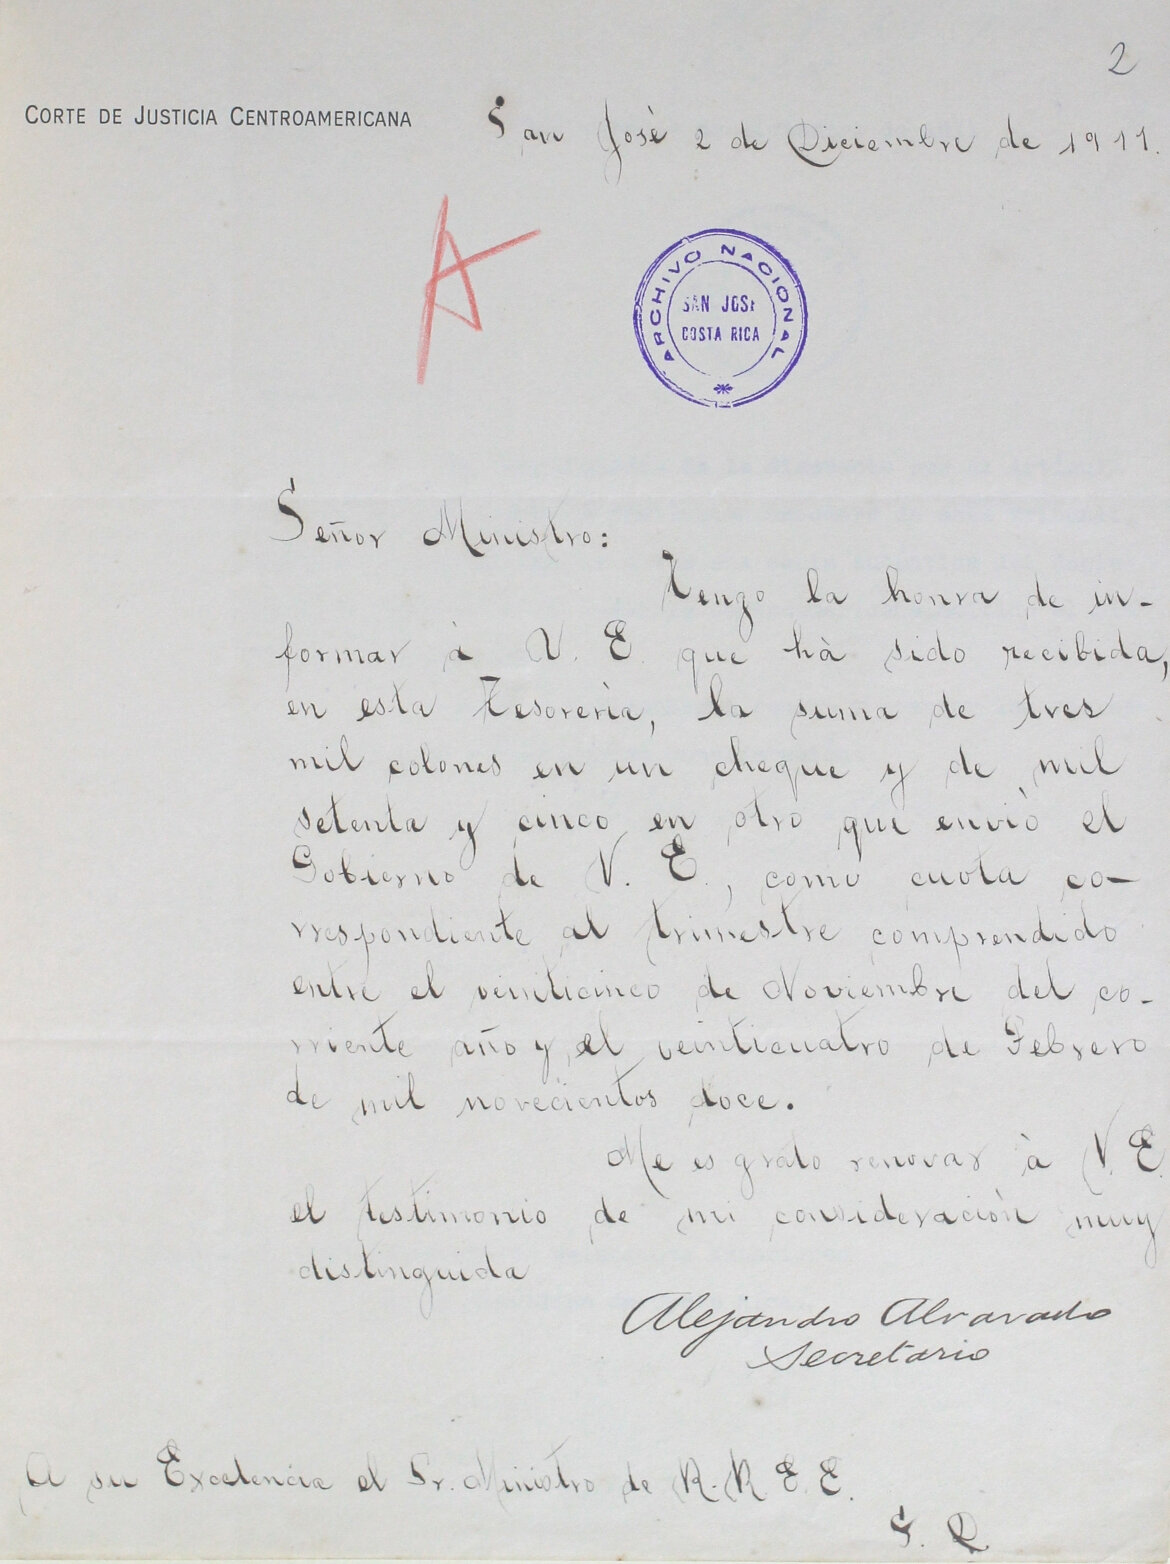 2
CORTE DE JUSTICIA CENTROAMERICANA
San José 2 de Diciembre de 1911.
A
ARCHIVO NACIONAL
SAN JOSE
COSTA RICA
Señor Ministro:
Tengo la honra de in-
formar à V. E. que hà sido recibida,
en esta Tesorería, la suma de tres
mil colones en un cheque y de mil
setenta y cinco en otro que enviò el
Gobierno de V. E., como cuota co-
rrespondiente al trimestre comprendido
entre el veinticinco de Noviembre del co-
rriente año y el veinticuatro de Febrero
de mil novecientos doce.
Me es grato renovar à V. E.
el testimonio de mi consideraciòn muy
distinguida
Alejandro Alvarado
Secretario
A su Excelencia el Sr. Ministro de R. R. E. E.